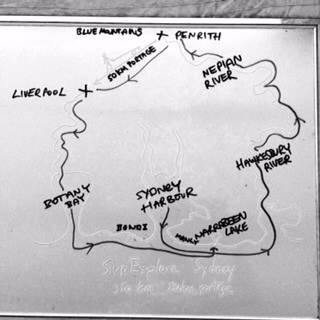 BLUE MOUNTAINS
PENRITH
50KM PORTAGE
NEPIAN
RIVER
LIVERPOOL
HAWKESBURY
RIVER
BOTANY
BAY
SYDNEY
HARBOUR
BONDI
NARRABEEN
LAKE
SupExplore Sydney